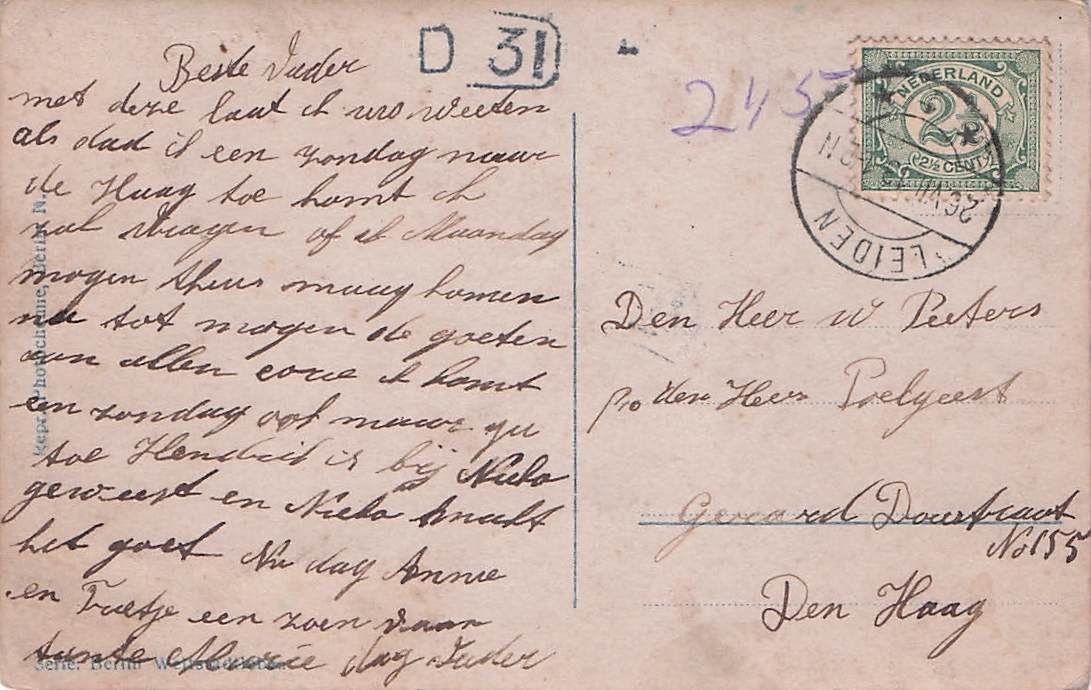 D 31
245
NEDERLAND
2½
2½ CENT
LEIDEN
Beste Vader
met deze laat ik uw weeten
als dad ik een zondag naar
de Haag toe komt ik
zal vragen of ik Maandag
mogen thuis maag komen
nu tot mogen de goeten
van allen cowe ik komt
een zondag ook naar yu
toe Hendrik is bij
geweest en maakt
het goet Nu dag Annie
en een zoen van
tante Marie dag Vader
Den Heer W Peeters
p/o den Heer Poelgeest
Gerard Doustraat
No 155
Den Haag
Repr. Photochemie, Berlin N.
Serie: Berlin